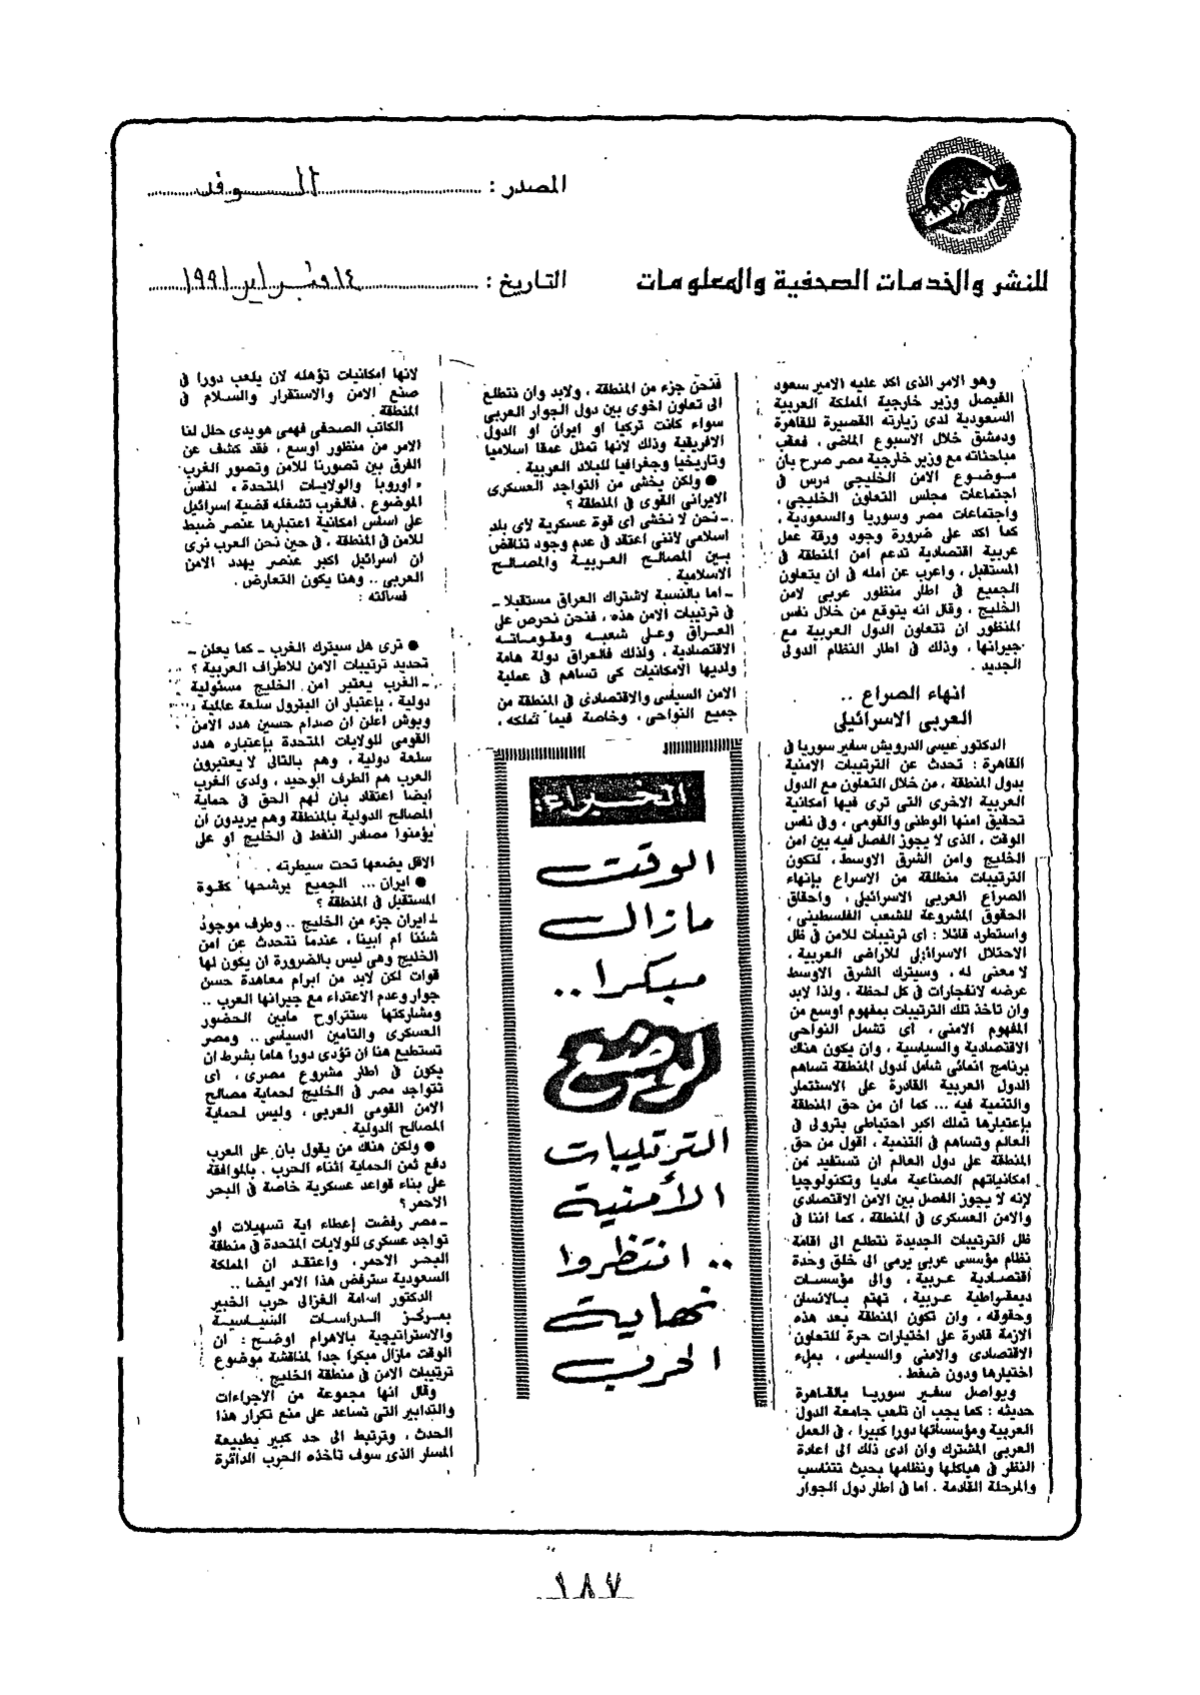 المدروسة
للنشر والخدمات الصحفية والمعلومات
المصدر : الوفد
التاريخ : ١٤ فبراير ١٩٩١
وهو الامر الذى اكد عليه الامير سعود
الفيصل وزير خارجية المملكة العربية
السعودية لدى زيارته القصيرة للقاهرة
ودمشق خلال الاسبوع الماضى ، فعقب
مباحثاته مع وزير خارجية مصر صرح بأن
موضوع الامن الخليجى درس فى
اجتماعات مجلس التعاون الخليجى ،
واجتماعات مصر وسوريا والسعودية ،
كما اكد على ضرورة وجود ورقة عمل
عربية اقتصادية تدعم امن المنطقة فى
المستقبل ، واعرب عن امله فى ان يتعاون
الجميع فى اطار منظور عربى لامن
الخليج ، وقال انه يتوقع من خلال نفس
المنظور ان تتعاون الدول العربية مع
جيرانها ، وذلك فى اطار النظام الدولى
الجديد .
انهاء الصراع ..
العربى الاسرائيلى
الدكتور عيسى الدرويش سفير سوريا فى
القاهرة : تحدث عن الترتيبات الامنية
بدول المنطقة ، من خلال التعاون مع الدول
العربية الاخرى التى ترى فيها امكانية
تحقيق امنها الوطنى والقومى ، وفى نفس
الوقت ، الذى لا يجوز الفصل فيه بين امن
الخليج وامن الشرق الاوسط ، لتكون
الترتيبات منطلقة من الاسراع بإنهاء
الصراع العربى الاسرائيلى ، واحقاق
الحقوق المشروعة للشعب الفلسطينى ،
واستطرد قائلا : أى ترتيبات للامن فى ظل
الاحتلال الاسرائيلى للأراضى العربية ،
لا معنى له ، وسيترك الشرق الاوسط
عرضه لانفجارات فى كل لحظة ، ولذا لابد
وان تأخذ تلك الترتيبات بمفهوم اوسع من
المفهوم الامنى ، أى تشمل النواحى
الاقتصادية والسياسية ، وان يكون هناك
برنامج انمائى شامل لدول المنطقة تساهم
الدول العربية القادرة على الاستثمار
والتنمية فيه ... كما ان من حق المنطقة
بإعتبارها تملك اكبر احتياطى بترولى فى
العالم وتساهم فى التنمية ، اقول من حق
المنطقة على دول العالم ان تستفيد من
امكانياتهم الصناعية ماديا وتكنولوجيا
لإنه لا يجوز الفصل بين الامن الاقتصادى
والامن العسكرى فى المنطقة ، كما اننا فى
ظل الترتيبات الجديدة نتطلع الى اقامة
نظام مؤسسى عربى يرمى الى خلق وحدة
اقتصادية عربية ، والى مؤسسات
ديمقراطية عربية ، تهتم بالانسان
وحقوقه ، وان تكون المنطقة بعد هذه
الازمة قادرة على اختيارات حرة للتعاون
الاقتصادى والامنى والسياسى ، بملء
اختيارها ودون ضغط .
ويواصل سفير سوريا بالقاهرة
حديثه : كما يجب ان تلعب جامعة الدول
العربية ومؤسساتها دورا كبيرا ، فى العمل
العربى المشترك وان ادى ذلك الى اعادة
النظر فى هياكلها ونظامها بحيث تتناسب
والمرحلة القادمة . اما فى اطار دول الجوار
فنحن جزء من المنطقة ، ولابد وان نتطلع
الى تعاون اخوى بين دول الجوار العربى
سواء كانت تركيا او ايران او الدول
الافريقية وذلك لانها تمثل عمقا اسلاميا
وتاريخيا وجغرافيا للبلاد العربية .
● ولكن يخشى من التواجد العسكرى
الايرانى القوى فى المنطقة ؟
ـ نحن لا نخشى أى قوة عسكرية لأى بلد
اسلامى لأننى اعتقد فى عدم وجود تناقض
بين المصالح العربية والمصالح
الاسلامية .
ـ اما بالنسبة لاشتراك العراق مستقبلا ـ
فى ترتيبات الامن هذه ، فنحن نحرص على
العراق وعلى شعبه ومقوماته
الاقتصادية ، ولذلك فالعراق دولة هامة
ولديها الامكانيات كى تساهم فى عملية
الامن السياسى والاقتصادى فى المنطقة من
جميع النواحى ، وخاصة فيما تملكه ،
الخبراء :
الوقت
مازال
مبكرا ..
لوضع
الترتيبات
الأمنية
.. انتظروا
نهاية
الحرب
لانها امكانيات تؤهله لان يلعب دورا فى
صنع الامن والاستقرار والسلام فى
المنطقة .
الكاتب الصحفى فهمى هويدى حلل لنا
الامر من منظور اوسع ، فقد كشف عن
الفرق بين تصورنا للامن وتصور الغرب
« اوروبا والولايات المتحدة » لنفس
الموضوع . فالغرب تشغله قضية اسرائيل
على اساس امكانية اعتبارها عنصر ضبط
للامن فى المنطقة ، فى حين نحن العرب نرى
ان اسرائيل اكبر عنصر يهدد الامن
العربى .. وهنا يكون التعارض .
فسالته :
● ترى هل سيترك الغرب ـ كما يعلن ـ
تحديد ترتيبات الامن للاطراف العربية ؟
ـ الغرب يعتبر امن الخليج مسئولية
دولية ، بإعتبار ان البترول سلعة عالمية ،
وبوش اعلن ان صدام حسين هدد الامن
القومى للولايات المتحدة بإعتباره هدد
سلعة دولية ، وهم بالتالى لا يعتبرون
العرب هم الطرف الوحيد ، ولدى الغرب
ايضا اعتقاد بان لهم الحق فى حماية
المصالح الدولية بالمنطقة وهم يريدون أن
يؤمنوا مصادر النفط فى الخليج او على
الاقل يضعها تحت سيطرته .
● ايران ... الجميع يرشحها كقوة
المستقبل فى المنطقة ؟
ـ ايران جزء من الخليج .. وطرف موجود
شئنا ام ابينا ، عندما نتحدث عن امن
الخليج وهى ليس بالضرورة ان يكون لها
قوات لكن لابد من ابرام معاهدة حسن
جوار وعدم الاعتداء مع جيرانها العرب ..
ومشاركتها ستتراوح مابين الحضور
العسكرى والتامين السياسى .. ومصر
تستطيع هنا ان تؤدى دورا هاما بشرط ان
يكون فى اطار مشروع مصرى ، أى
تتواجد مصر فى الخليج لحماية مصالح
الامن القومى العربى ، وليس لحماية
المصالح الدولية .
● ولكن هناك من يقول بان على العرب
دفع ثمن الحماية اثناء الحرب . بالموافقة
على بناء قواعد عسكرية خاصة فى البحر
الاحمر ؟
ـ مصر رفضت إعطاء اية تسهيلات او
تواجد عسكرى للولايات المتحدة فى منطقة
البحر الاحمر ، واعتقد ان المملكة
السعودية سترفض هذا الامر ايضا ..
الدكتور اسامة الغزالى حرب الخبير
بمركز الدراسات السياسية
والاستراتيجية بالاهرام اوضح : ان
الوقت مازال مبكرا جدا لمناقشة موضوع
ترتيبات الامن فى منطقة الخليج .
وقال انها مجموعة من الاجراءات
والتدابير التى تساعد على منع تكرار هذا
الحدث ، وترتبط الى حد كبير بطبيعة
المسار الذى سوف تأخذه الحرب الدائرة
١٨٧